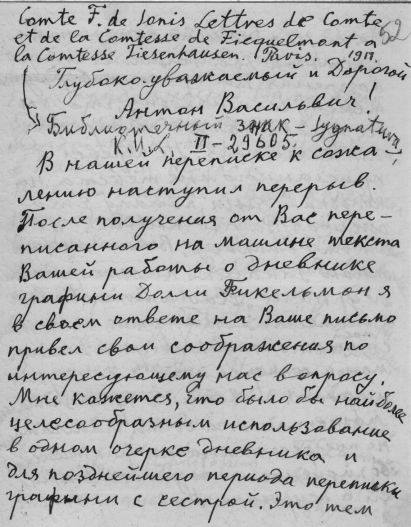 Comte F. de Sonis Lettres de Comte
et de la Comtesse de Ficquelmont a
la Comtesse Tiesenhausen. Paris. 1911.
52
Глубокоуважаемый и Дорогой
Антон Васильевич!
Библиотечный знак – Sygnatura
К.И.Х. II – 29605.
В нашей переписке к сожа-
лению наступил перерыв.
После получения от Вас пере-
писанного на машине текста
Вашей работы о дневнике
графини Долли Фикельмон я
в своем ответе на Ваше письмо
привел свои соображения по
интересующему нас вопросу.
Мне кажется, что было бы наиболее
целесообразным использование
в одном очерке дневника и
для позднейшего периода переписки
графини с сестрой. Это тем